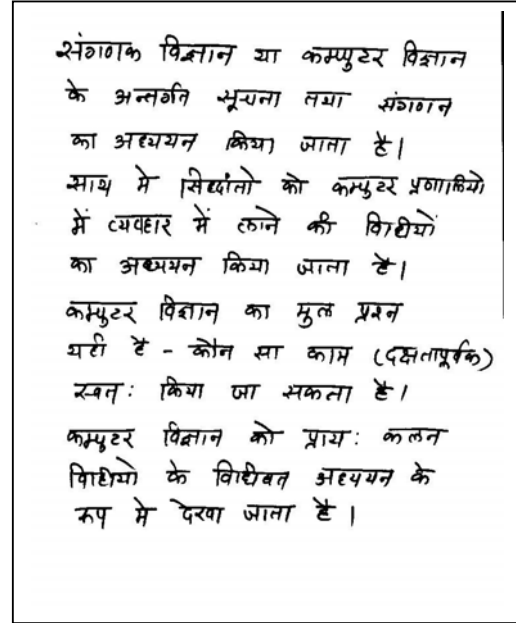 संगणक विज्ञान या कम्प्युटर विज्ञान
के अन्तर्गत सूचना तथा संगणन
का अध्ययन किया जाता है।
साथ मे सिध्दांतो को कम्प्युटर प्रणालियो
में व्यवहार में लाने की विधीयों
का अध्ययन किया जाता है।
कम्प्युटर विज्ञान का मुल प्रश्न
यही है - कौन सा काम (दक्षतापूर्वक)
स्वत: किया जा सकता है।
कम्प्युटर विज्ञान को प्राय: कलन
विधीयो के विधीवत अध्ययन के
रुप मे देखा जाता है।